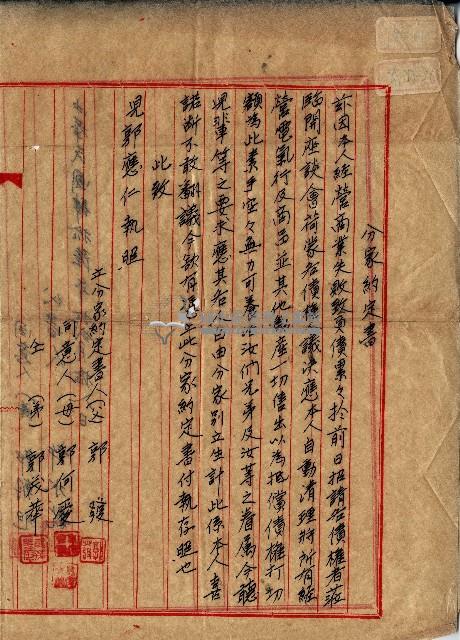 分家約定書
訴因本人經營商業失敗致負債累々於前日招請各債權者蒞
臨開座談會荷蒙各債權議決應本人自動清理將所有經
營電氣行及商品並其他動產一切售出以為抵償債權打切
額為此素手空々無力可養汝們兄弟及汝等之眷屬今聽
兒輩等之要求應其各人自由分家別立生計此係本人喜
諾斷不敢翻議今欲有憑立此分家約定書付執存照也
此致
兒郭應仁執照
立分家約定書人(父)郭
同意人(母)郭何
仝(弟)郭